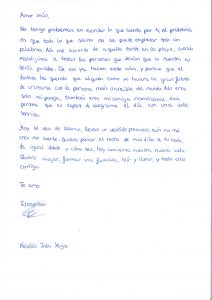 Amor mío,
No tengo problemas en escribir lo que siento por ti, el problema
es que todo lo que siento no se puede explicar solo con
palabras. Aún me acuerdo de aquella tarde en la playa, cuando
a todas las personas que decían que lo nuestro no
sería posible. De eso ya hacen siete años, y parece que el
destino ha querido que alguien como yo tuviera la gran fortuna
de cruzarme con la persona más increíble del mundo. No eres
solo mi pareja, también eres mi amiga incondicional, esa
persona que es capaz de alegrarme el día con una sola
sonrisa.
Hoy te veo de blanco, llevas un vestido precioso, aún no me
creo mi suerte, quiero pasar el resto de mis días a tu lado,
da igual donde y cómo sea, hoy comienza nuestra nueva vida.
Quiero viajar, formar una familia, reír y llorar, y todo ello
contigo.
Te amo
Nicolás